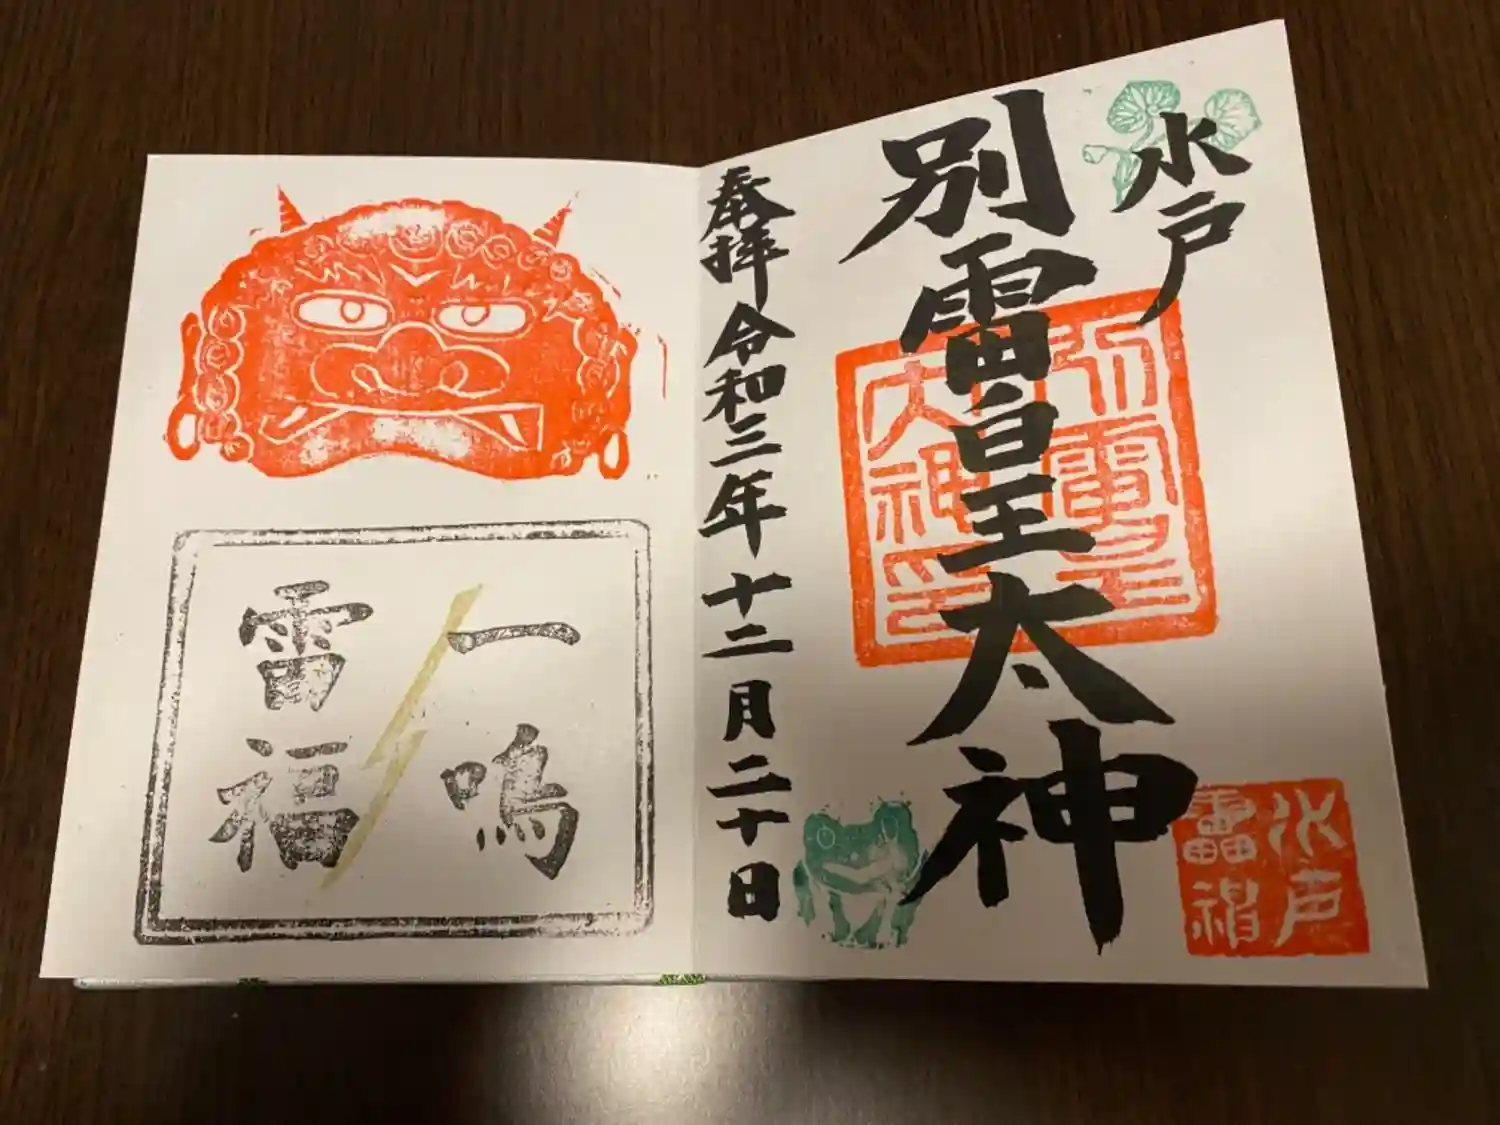 水戸
別雷皇太神
別雷皇
大神
水戸
雷神
奉拝 令和三年十二月二十日
一鳴
雷福